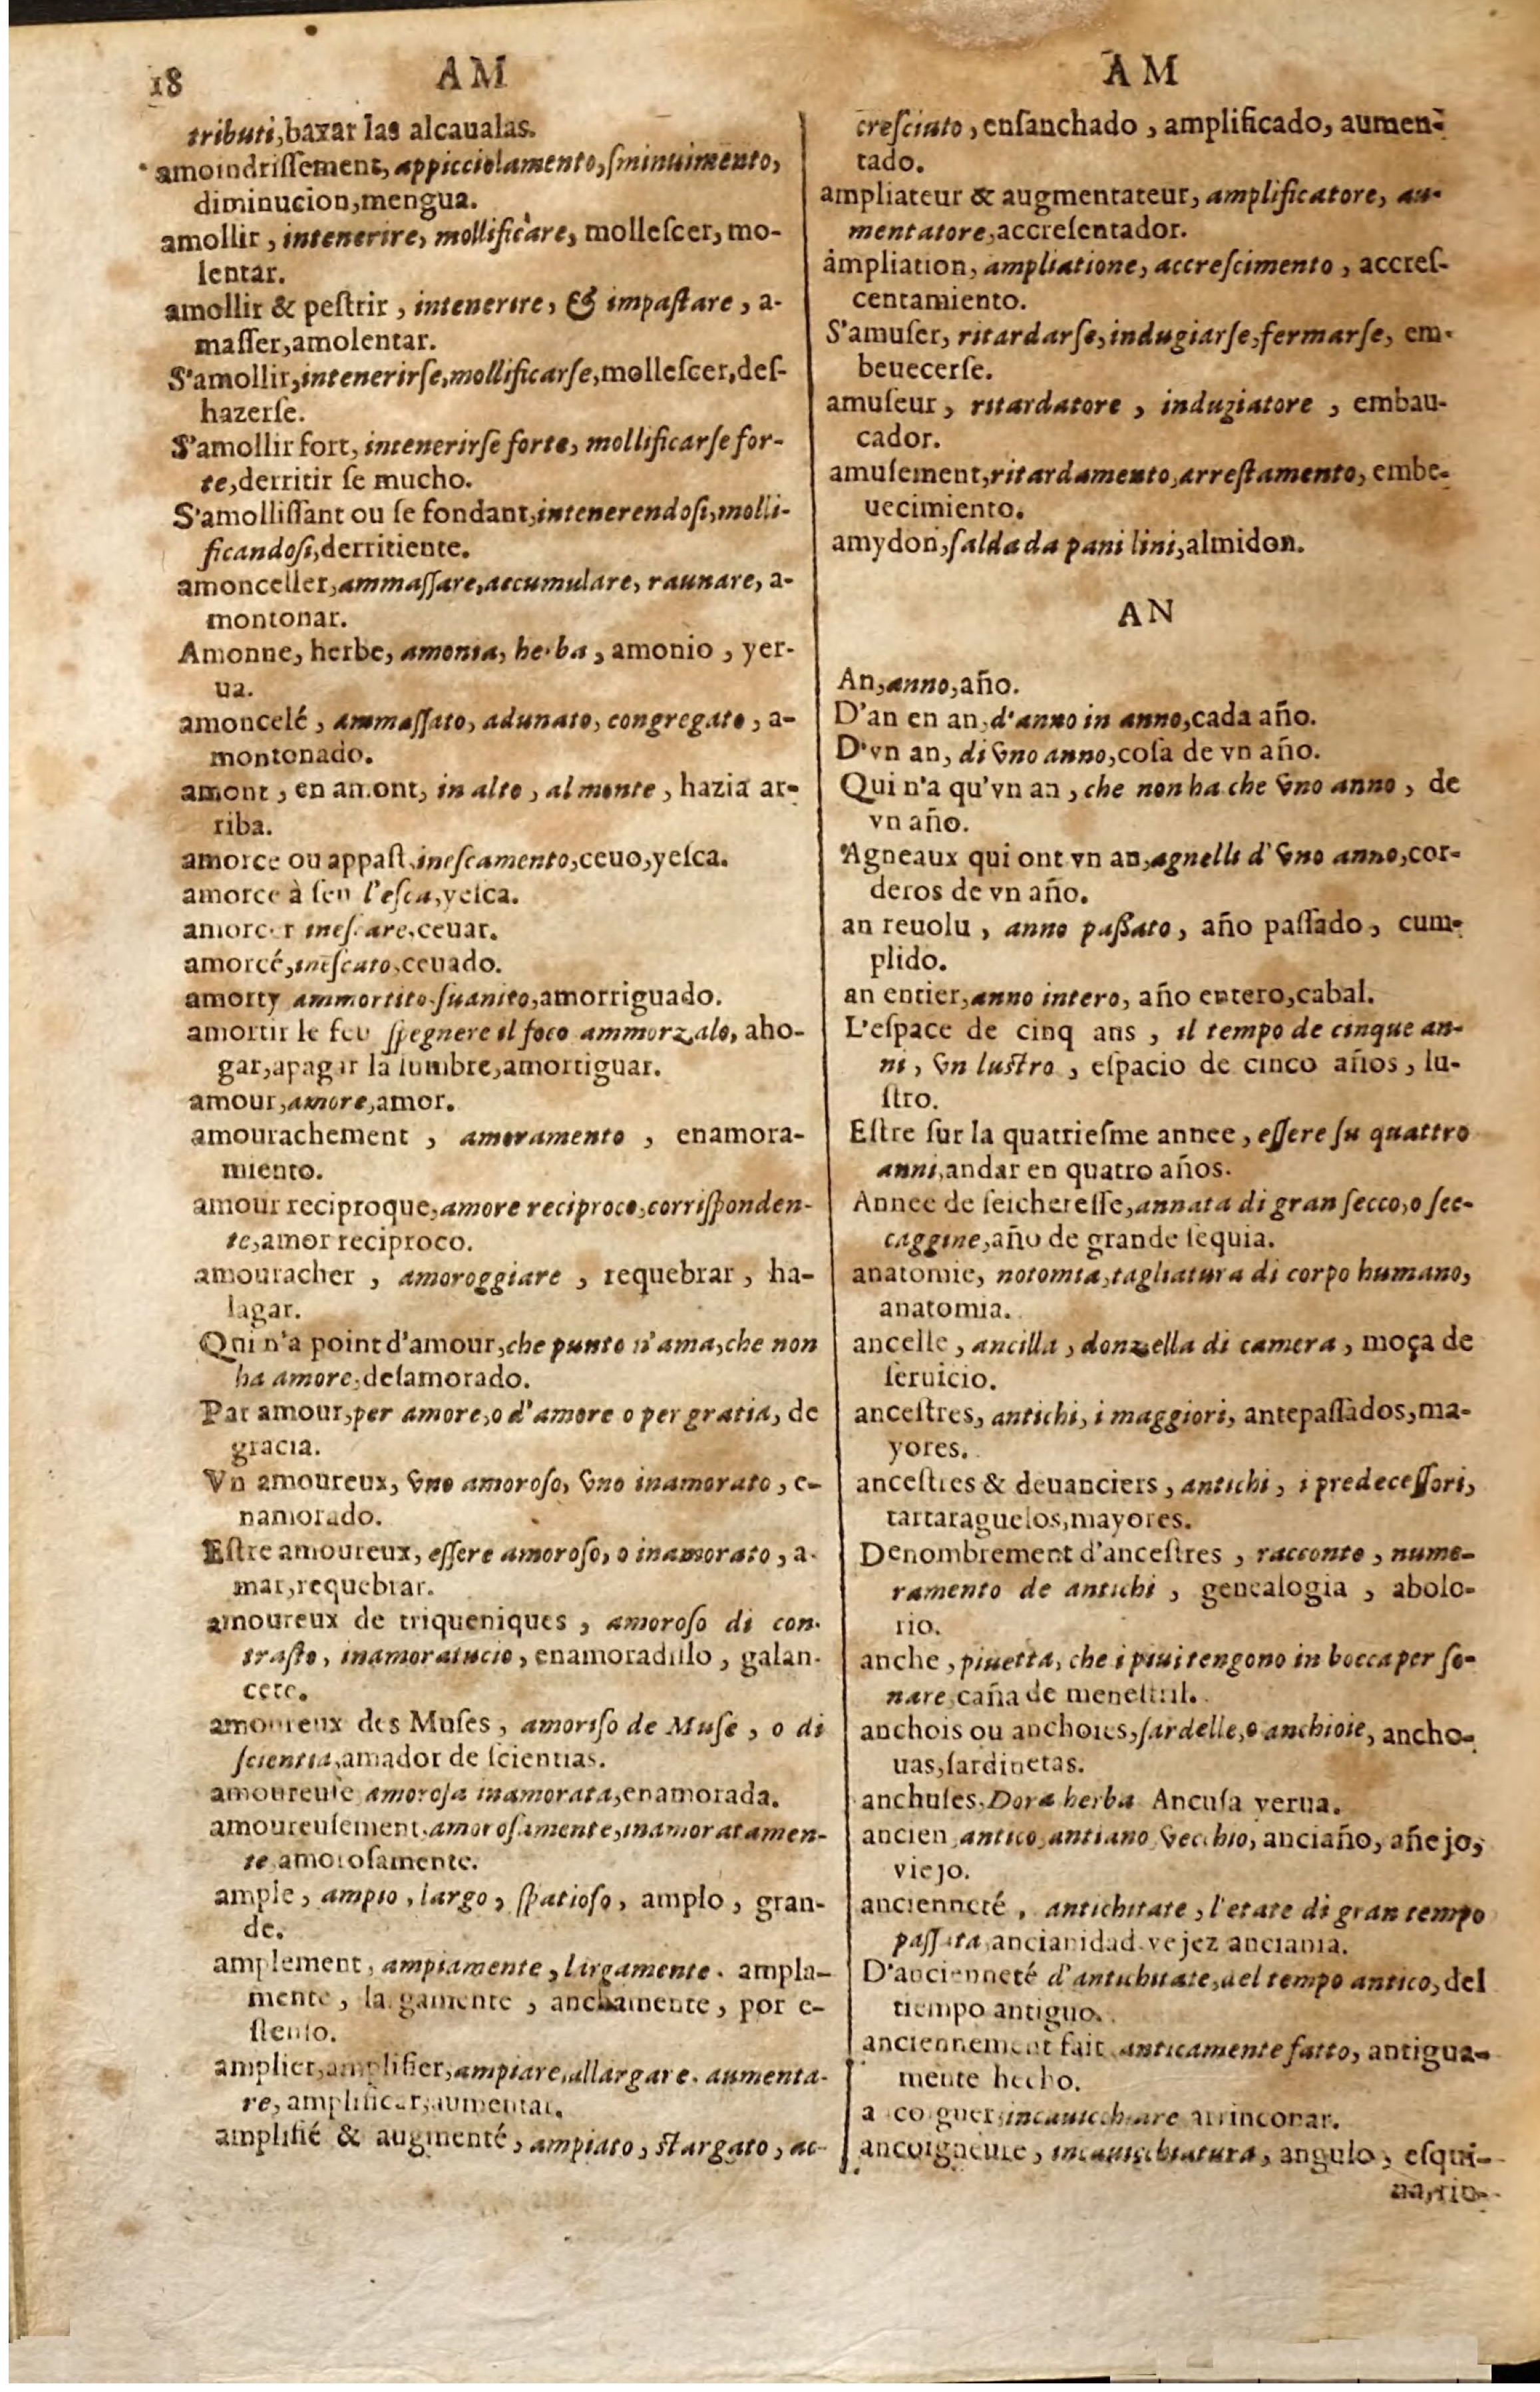 18 AM
tributi, baxar las alcaualas.
amoindriſſement, appicciolamento, ſminuimento,
diminucion, mengua.
amollir, intenerire, mollificare, molleſcer, mo-
lentar.
amollir & peſtrir, intenerire, & impaſtare, a-
maſſer, amolentar.
S'amollir, intenerirſe, mollificarſe, molleſcer, deſ-
hazerſe.
S'amollir fort, intenerirſe forte, mollificarſe for-
te, derritir ſe mucho.
S'amolliſſant ou ſe fondant, intenerendoſi, molli-
ficandoſi, derritiente.
amonceller, ammaſſare, accumulare, raunare, a-
montonar.
Amonne, herbe, amonia, herba, amonio, yer-
ua.
amoncelé, ammaſſato, adunato, congregato, a-
montonado.
amont, en amont, in alto, al monte, hazia ar-
riba.
amorce ou appaſt, ineſcamento, ceuo, yeſca.
amorce à feu l'eſca, yeſca.
amorcer ineſcare, ceuar.
amorcé, ineſcato, ceuado.
amorty ammortito, ſuanito, amortiguado.
amortir le feu ſpegnere il foco ammorzalo, aho-
gar, apagar la lumbre, amortiguar.
amour, amore, amor.
amourachement, amoramento, enamora-
miento.
amour reciproque, amore reciproco, corriſponden-
te, amor reciproco.
amouracher, amoroggiare, requebrar, ha-
lagar.
Qui n'a point d'amour, che punto n'ama, che non
ha amore, deſamorado.
Par amour, per amore, o d'amore o per gratia, de
gracia.
Vn amoureux, vno amoroſo, vno inamorato, e-
namorado.
Eſtre amoureux, eſſere amoroſo, o inamorato, a-
mar, requebrar.
amoureux de triqueniques, amoroſo di con-
traſto, inamoratucio, enamoradillo, galan-
cete.
amoureux des Muſes, amoriſo de Muſe, o di
ſcientia, amador de ſcientias.
amoureuſe amoroſa inamorata, enamorada.
amoureuſement, amoroſamente, inamoratamen-
te amoroſamente.
ample, ampio, largo, ſpatioſo, amplo, gran-
de.
amplement, ampiamente, largamente. ampla-
mente, largamente, anchamente, por e-
ſtenſo.
amplier, amplifier, ampiare, allargare, aumenta-
re, amplificar, aumentar.
amplifié & augmenté, ampiato, ſlargato, ac-
AM
creſciuto, enſanchado, amplificado, aumen-
tado.
ampliateur & augmentateur, amplificatore, au-
mentatore, accreſentador.
ampliation, ampliatione, accreſcimento, accreſ-
centamiento.
S'amuſer, ritardarſe, indugiarſe, fermarſe, em-
beuecerſe.
amuſeur, ritardatore, indugiatore, embau-
cador.
amuſement, ritardamento, arreſtamento, embe-
uecimiento.
amydon, ſalda da pani lini, almidon.
AN
An, anno, año.
D'an en an, d'anno in anno, cada año.
D'vn an, di vno anno, coſa de vn año.
Qui n'a qu'vn an, che non ha che vno anno, de
vn año.
Agneaux qui ont vn an, agnelli d'vno anno, cor-
deros de vn año.
an reuolu, anno paſſato, año paſſado, cum-
plido.
an entier, anno intero, año entero, cabal.
L'eſpace de cinq ans, il tempo de cinque an-
ni, vn luſtro, eſpacio de cinco años, lu-
ſtro.
Eſtre ſur la quatrieſme annee, eſſere ſu quattro
anni, andar en quatro años.
Annee de ſeichereſſe, annata di gran ſecco, o ſec-
caggine, año de grande ſequia.
anatomie, notomia, tagliatura di corpo humano,
anatomia.
ancelle, ancilla, donzella di camera, moça de
ſeruicio.
anceſtres, antichi, i maggiori, antepaſſados, ma-
yores.
anceſtres & deuanciers, antichi, i predeceſſori,
tartaraguelos, mayores.
Denombrement d'anceſtres, racconto, nume-
ramento de antichi, genealogia, abolo-
rio.
anche, piuetta, che i piui tengono in bocca per ſo-
nare, caña de meneſtril.
anchois ou anchoies, ſardelle, o anchioie, ancho-
uas, ſardinetas.
anchuſes, Dora herba Ancuſa yerua.
ancien antico, antiano vecchio, anciaño, añejo,
viejo.
ancienneté, antichitate, l'etate di gran tempo
paſſata, ancianidad. vejez anciania.
D'ancienneté d'antichitate, del tempo antico, del
tiempo antiguo.
anciennement fait anticamente fatto, antigua-
mente hecho.
incauicchiare arrinconar.
ancoigneure, incauicchiatura, angulo, eſqui-
na, rin-